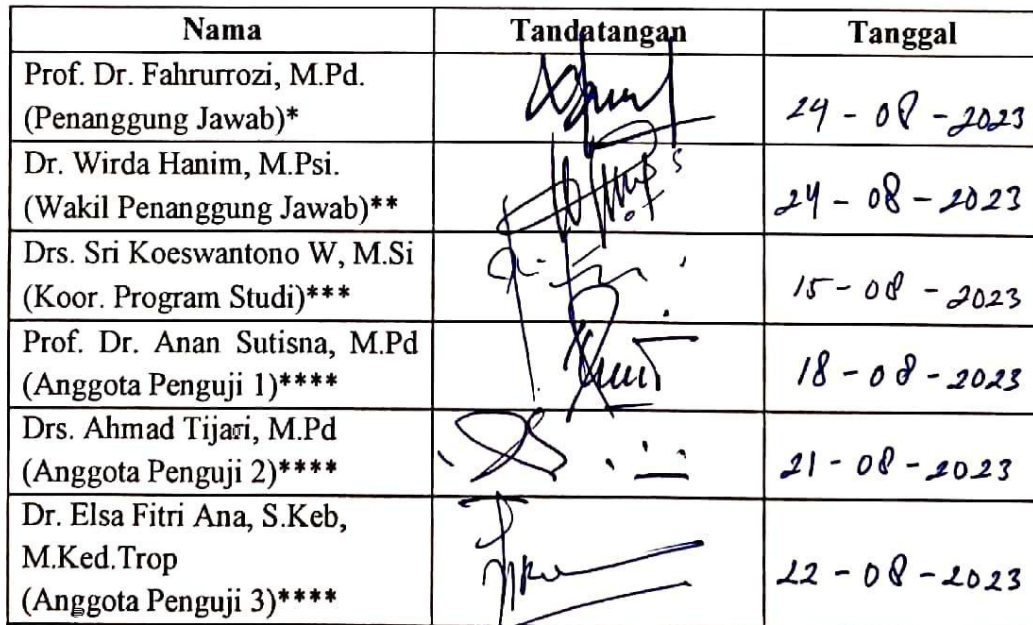 Nama Tandatangan Tanggal
Prof. Dr. Fahrurrozi, M.Pd.
(Penanggung Jawab)* 24 - 08 - 2023
Dr. Wirda Hanim, M.Psi.
(Wakil Penanggung Jawab)** 24 - 08 - 2023
Drs. Sri Koeswantono W, M.Si
(Koor. Program Studi)*** 15 - 08 - 2023
Prof. Dr. Anan Sutisna, M.Pd
(Anggota Penguji 1)**** 18 - 08 - 2023
Drs. Ahmad Tijari, M.Pd
(Anggota Penguji 2)**** 21 - 08 - 2023
Dr. Elsa Fitri Ana, S.Keb,
M.Ked.Trop
(Anggota Penguji 3)**** 22 - 08 - 2023